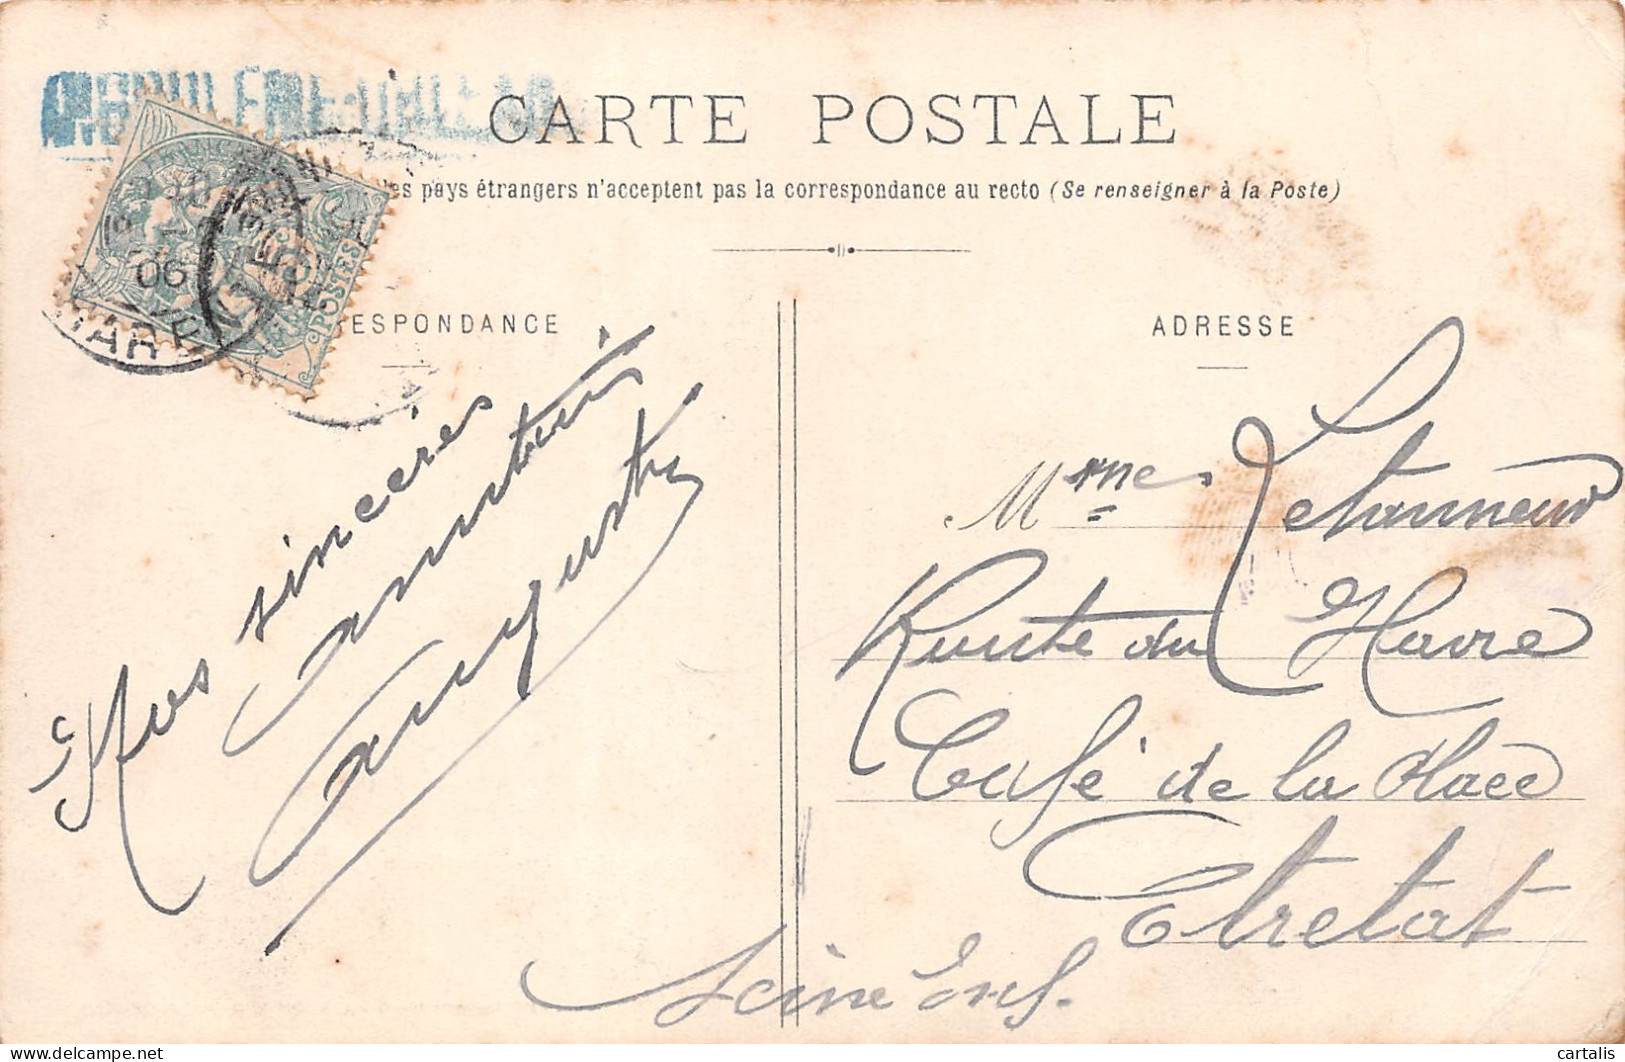 CARTE POSTALE
les pays étrangers n'acceptent pas la correspondance au recto (Se renseigner à la Poste)
ESPONDANCE
ADRESSE
POSTES
06
Mes sincères
amitiés
Auguste
Mmes Letanneur
Route du Havre
Café de la Place
Etretat
Seine Inf.
delcampe.net
cartalis